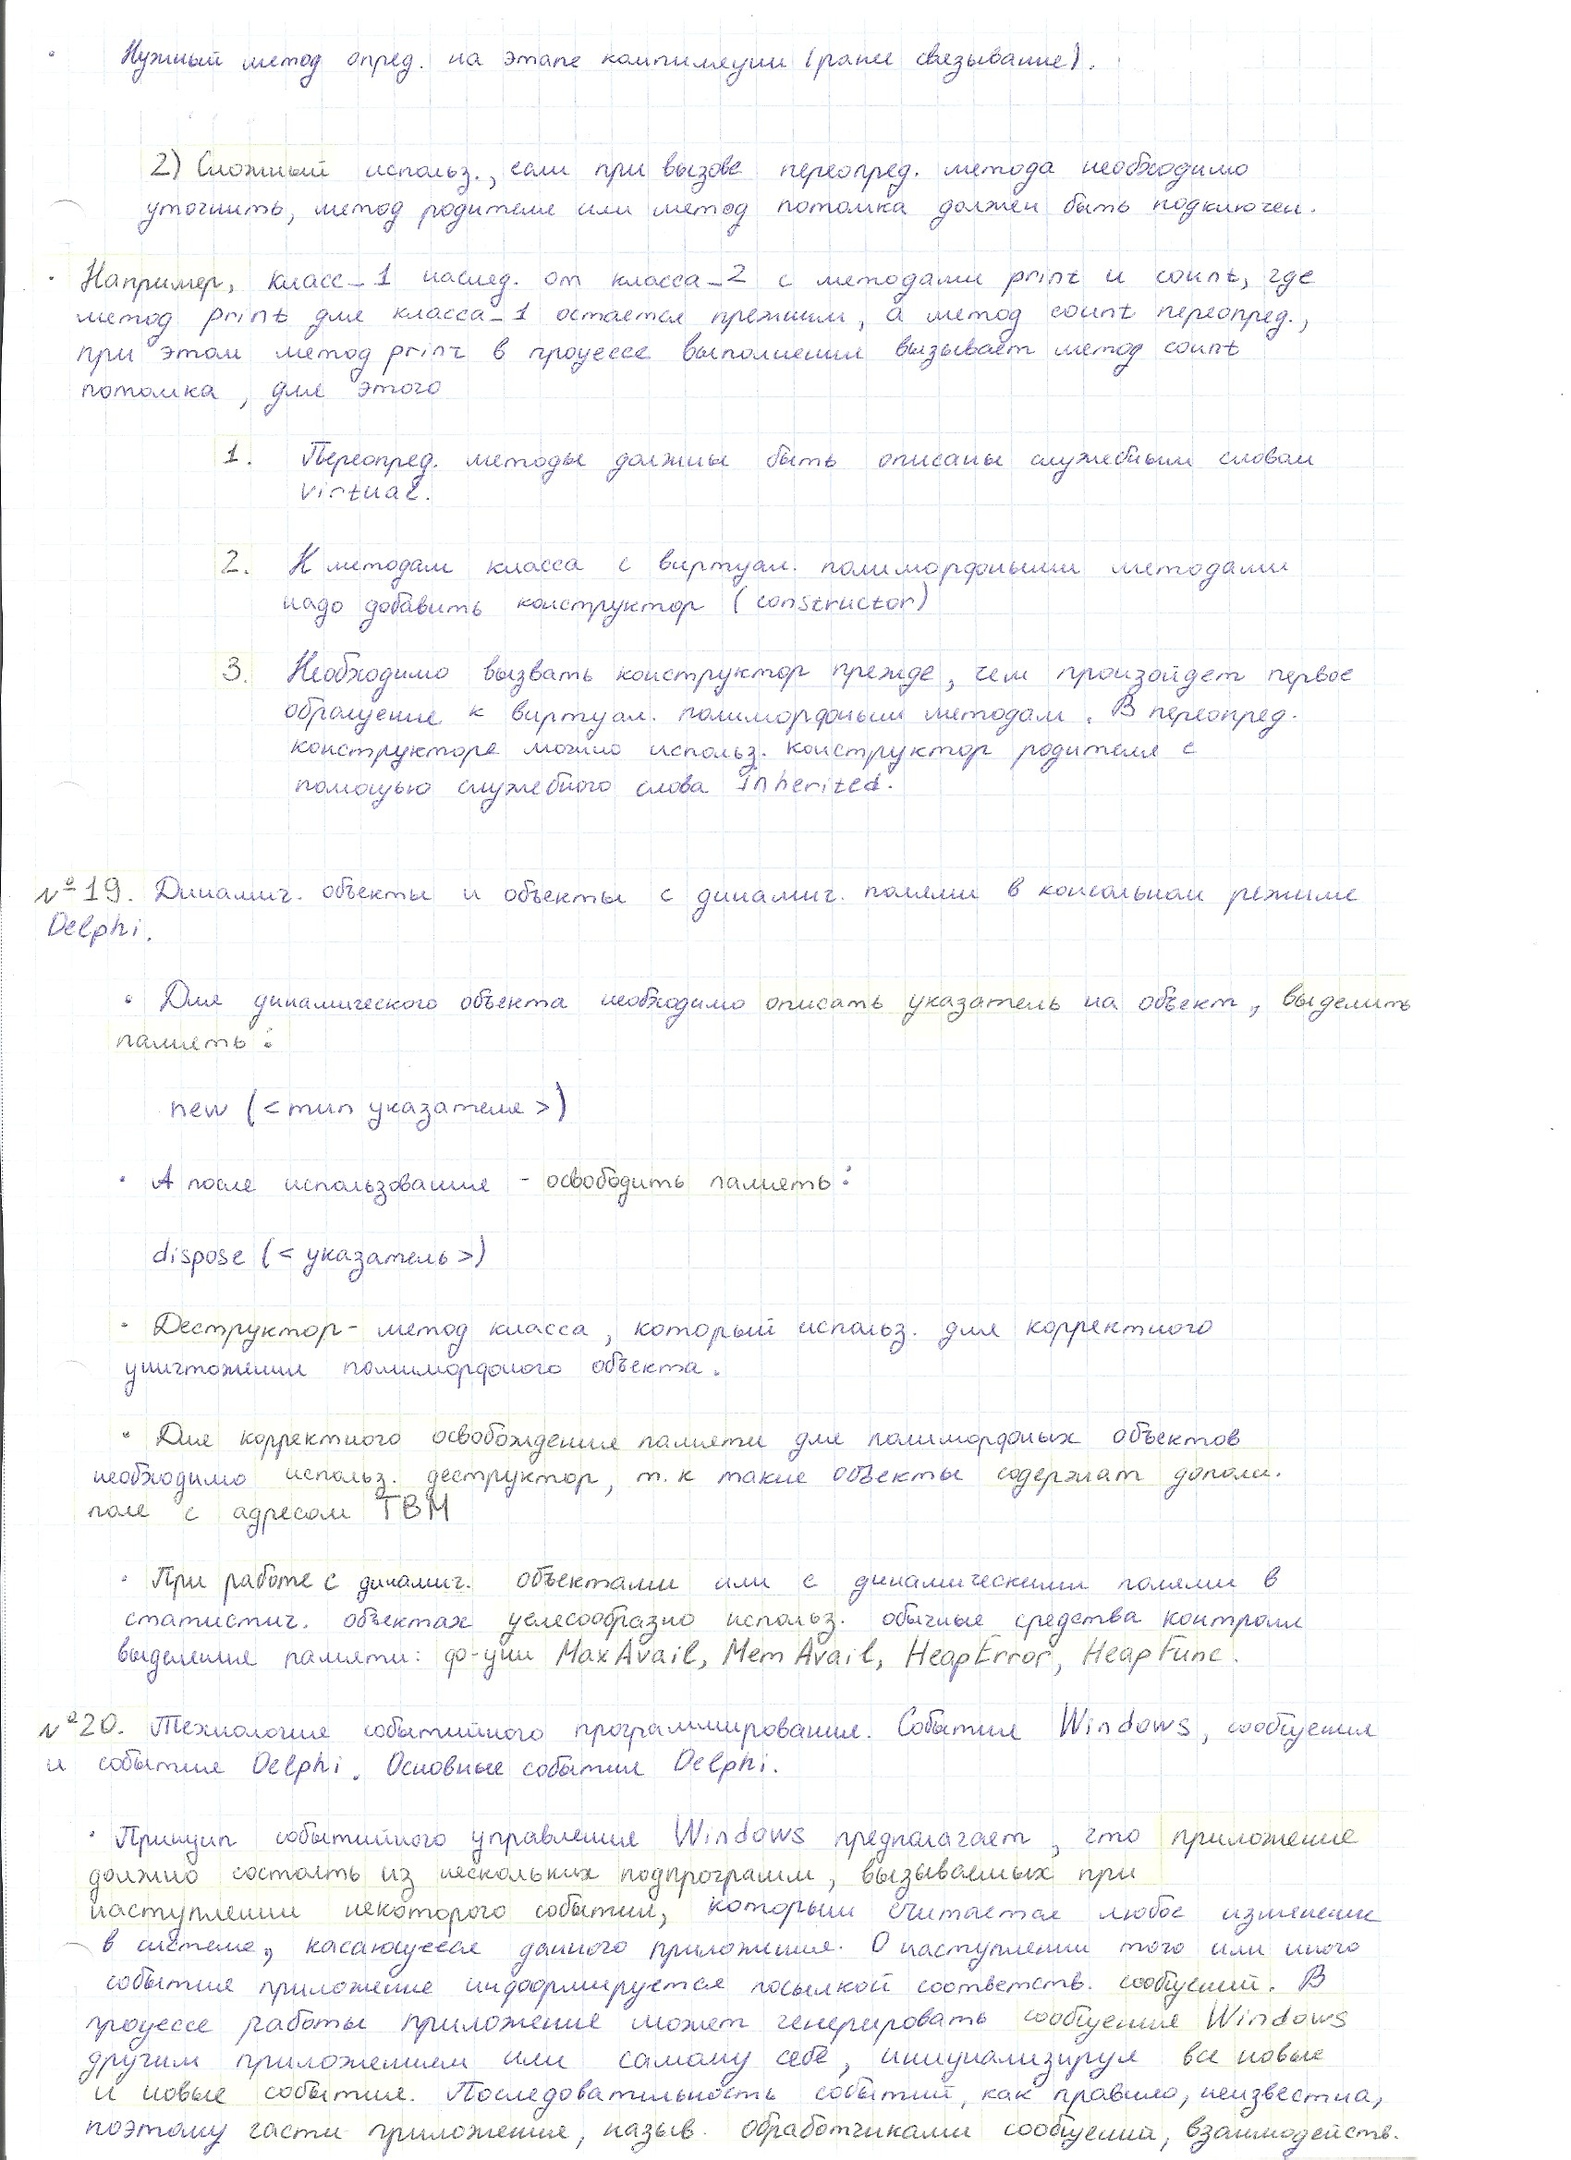 · Нужный метод опред. на этапе компиляции (ранее связывание).
2) Сложный использ., если при вызове переопред. метода необходимо
уточнить, метод родителя или метод потомка должен быть подключен.
· Например, класс_1 наслед. от класса_2 с методами print и count, где
метод print для класса_1 остается прежним, а метод count переопред.,
при этом метод print в процессе выполнения вызывает метод count
потомка, для этого
1. Переопред. методы должны быть описаны служебным словом
virtual.
2. К методам класса с виртуал. полиморфными методами
надо добавить конструктор (constructor)
3. Необходимо вызвать конструктор прежде, чем произойдет первое
обращение к виртуал. полиморфным методам. В переопред.
конструкторе можно использ. конструктор родителя с
помощью служебного слова inherited.
№19. Динамич. объекты и объекты с динамич. полями в консольном режиме
Delphi.
· Для динамического объекта необходимо описать указатель на объект, выделить
память:
new (<тип указателя>)
· А после использования - освободить память:
dispose (<указатель>)
· Деструктор - метод класса, который использ. для корректного
уничтожения полиморфного объекта.
· Для корректного освобождения памяти для полиморфных объектов
необходимо использ. деструктор, т.к такие объекты содержат дополн.
поле с адресом ТВМ
· При работе с динамич. объектами или с динамическими полями в
статистич. объектах целесообразно использ. обычные средства контроля
выделения памяти: ф-ции MaxAvail, MemAvail, HeapError, HeapFunc.
№20. Технология событийного программирования. События Windows, сообщения
и события Delphi. Основные события Delphi.
· Принцип событийного управления Windows предполагает, что приложение
должно состоять из нескольких подпрограмм, вызываемых при
наступлении некоторого события, которым считается любое изменение
в системе, касающееся данного приложения. О наступлении того или иного
события приложение информируется посылкой соответств. сообщений. В
процессе работы приложение может генерировать сообщения Windows
другим приложениям или самому себе, инициализируя все новые
и новые события. Последовательность событий, как правило, неизвестна,
поэтому части приложения, назыв. обработчиками сообщений, взаимодейств.